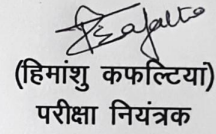 (हिमांशु कफल्टिया)
परीक्षा नियंत्रक